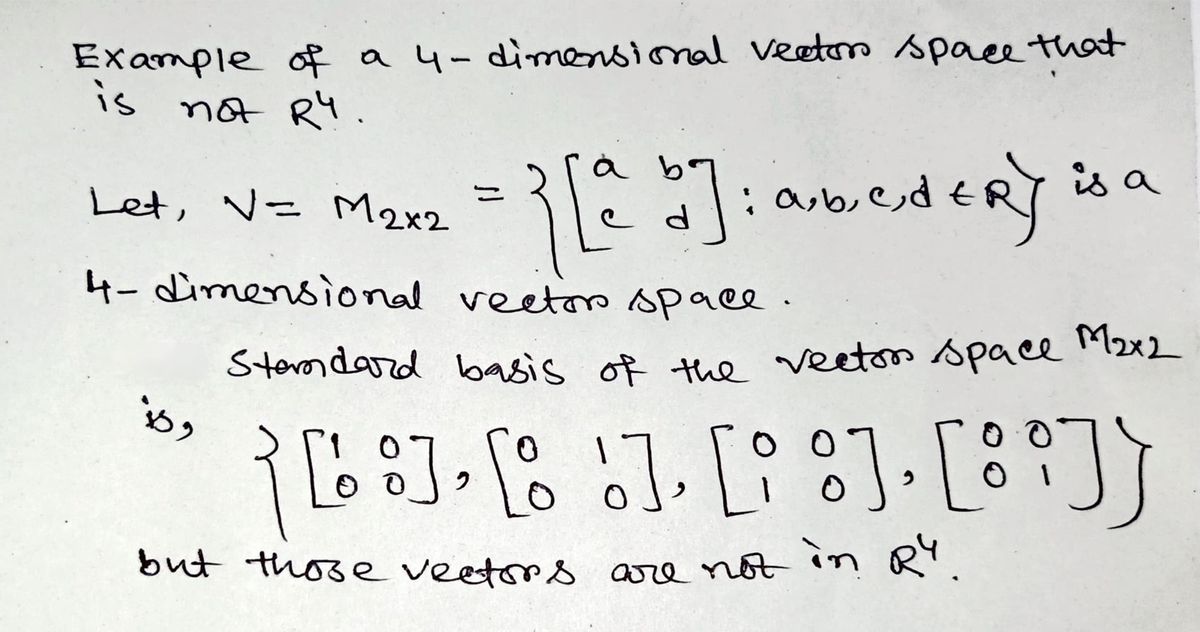 Example of a 4-dimensional vector space that
is not R⁴.
Let, V = M₂ₓ₂ = {[a b; c d] : a,b,c,d ∈ R} is a
4-dimensional vector space.
Standard basis of the vector space M₂ₓ₂
is,
{[1 0; 0 0], [0 1; 0 0], [0 0; 1 0], [0 0; 0 1]}
but those vectors are not in R⁴.